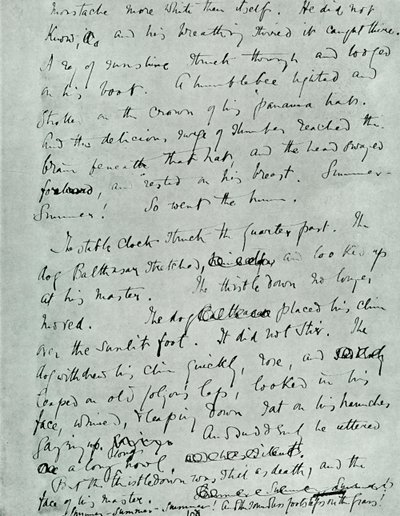 moustache more white than itself. He did not
know, and his breathing stirred it caught there.
A ray of sunshine struck through and lodged
on his boot. A humblebee lighted and
strolled on the crown of his panama hat.
And the delicious surge of slumber reached the
brain beneath that hat, and the head swayed
forward and rested on his breast. Summer-
Summer! So went the hum.
The stable clock struck the quarter past. The
dog Balthasar stretched, and looked up
at his master. The thistledown no longer
moved. The dog placed his chin
over the sunlit foot. It did not stir. The
dog withdrew his chin quickly, rose, and
leaped on old Jolyon's lap, looked in his
face, whined, & leaping down sat on his haunches
gazing up. And suddenly he uttered
a long long howl.
But the thistledown was still as death, and the
face of his master.
Summer-Summer-Summer! The soundless footsteps on the grass!